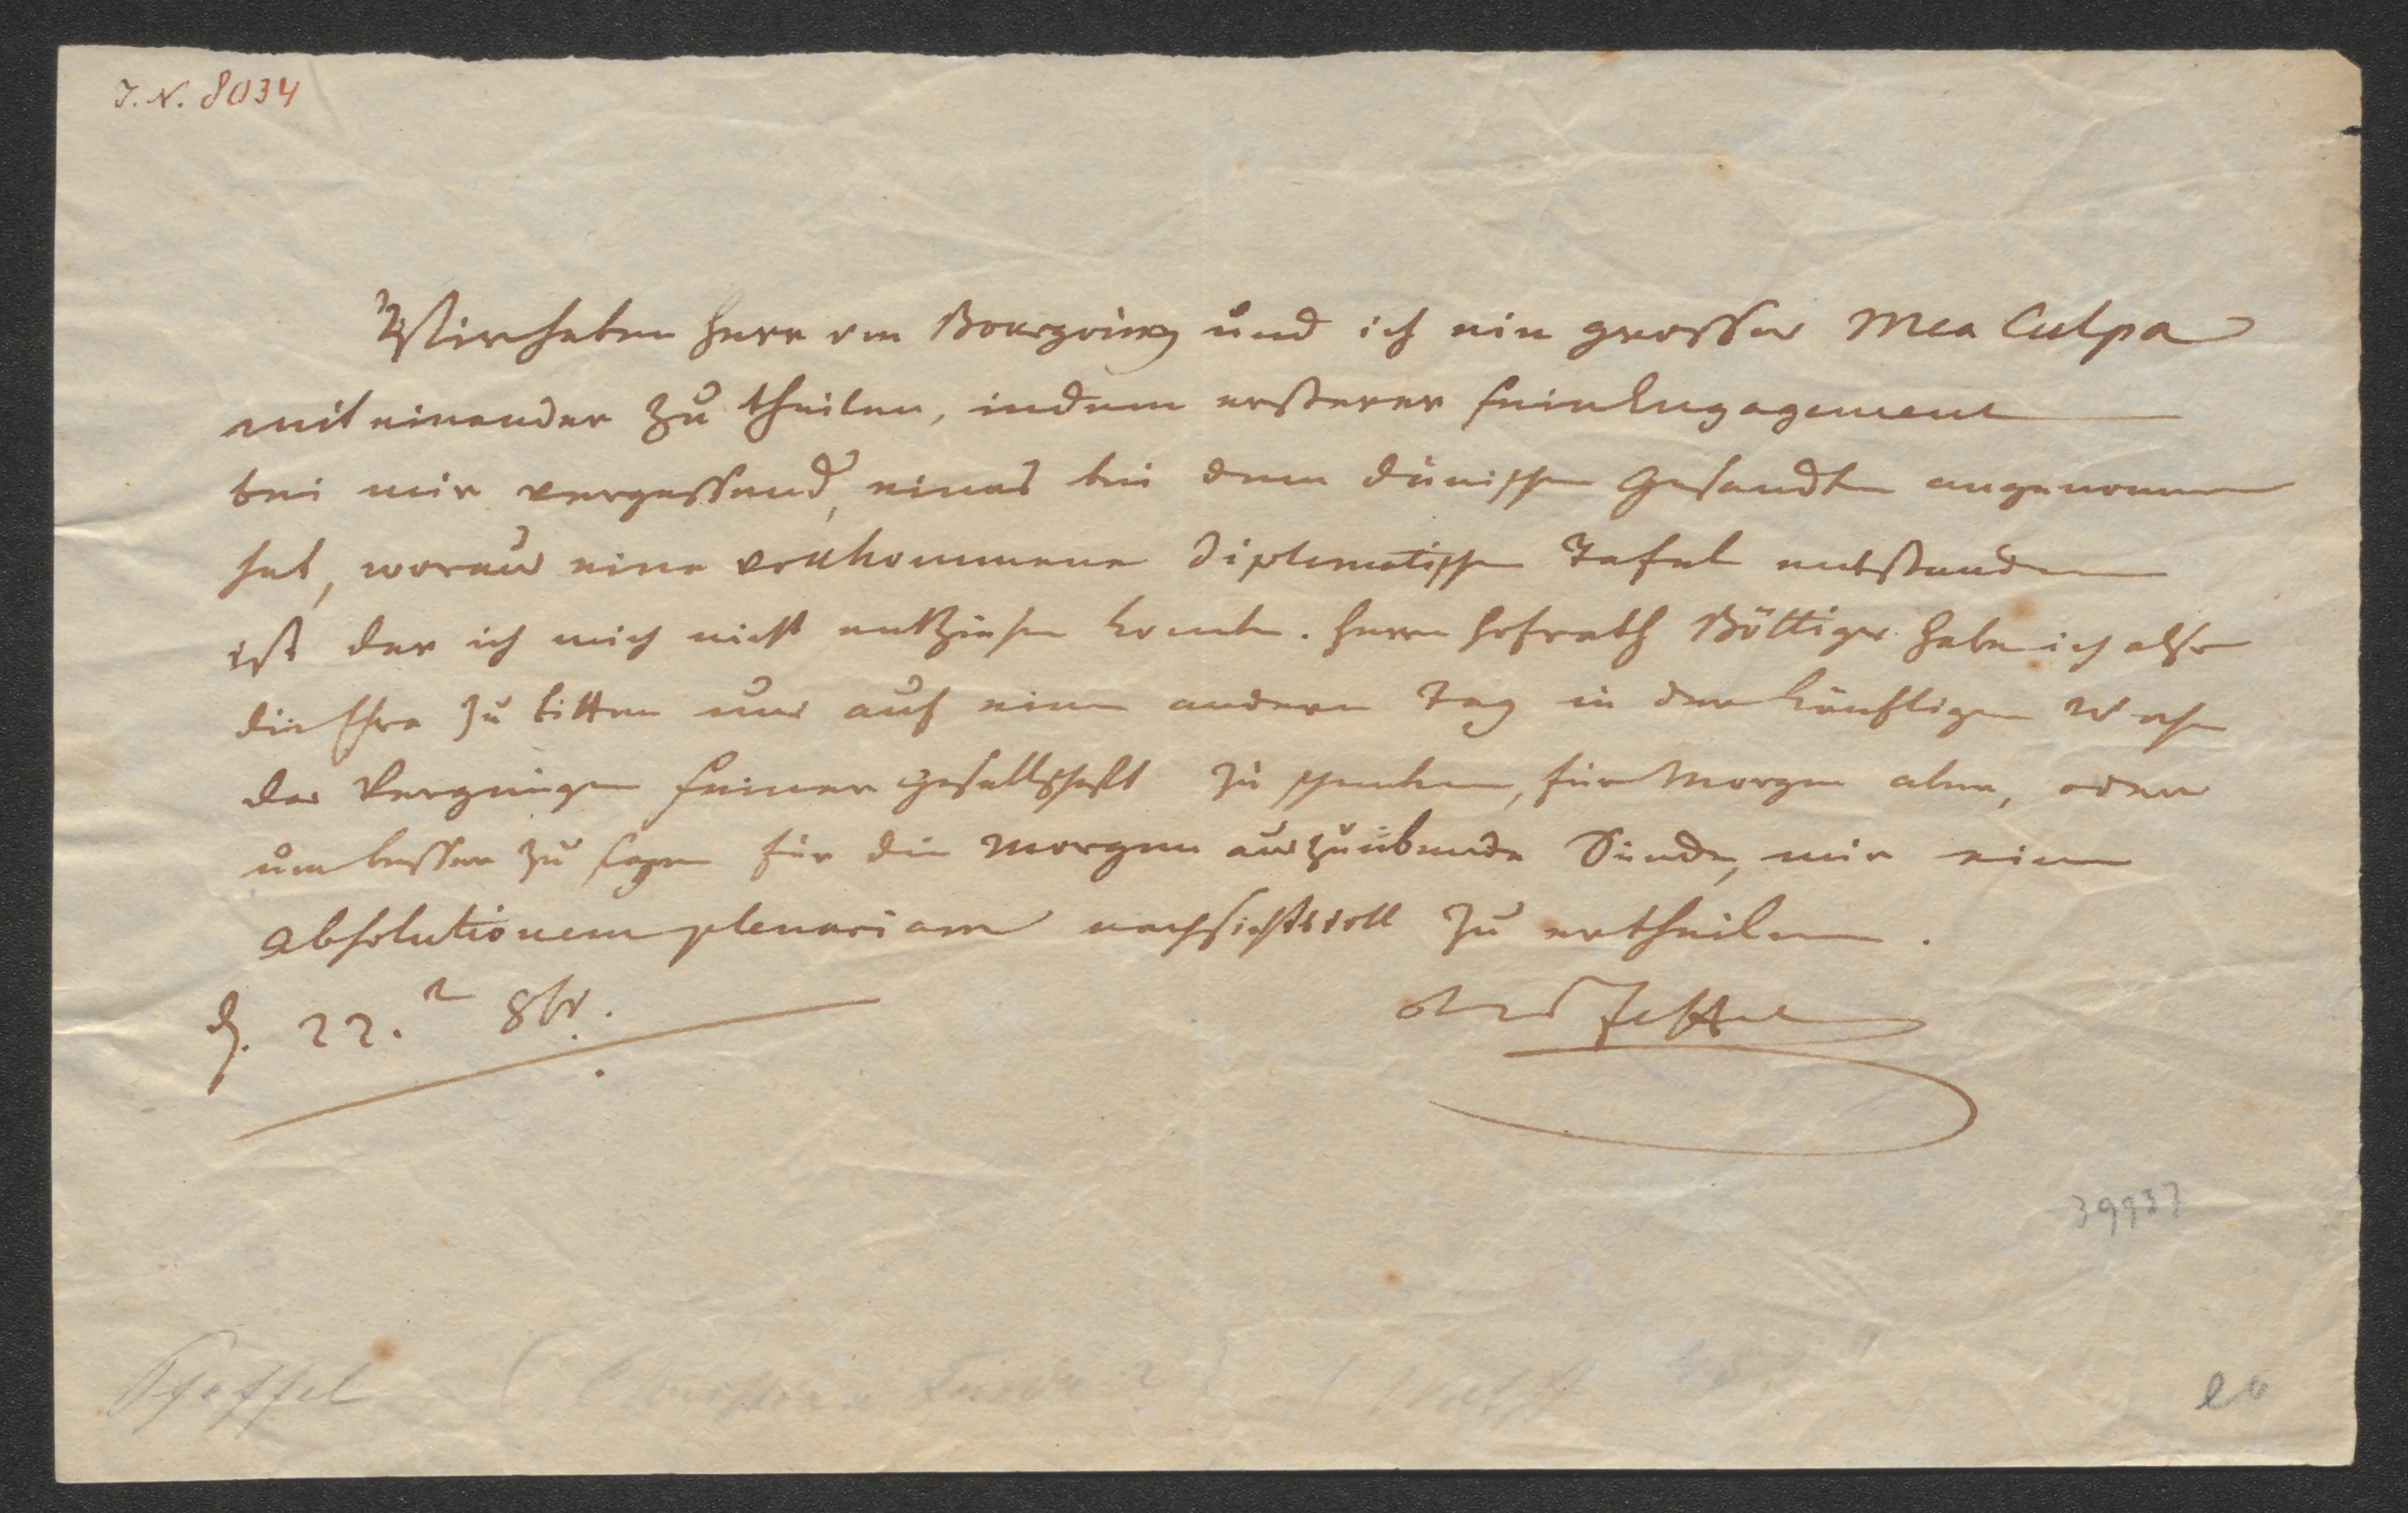 I. N. 8034
Wir haben Herr von Bourgoing und ich ein grosses Mea Culpa
mit einander zu theilen, indem ersterer sein Engagement
bei mir vergessend, eines bei dem dänischen Gesandten angenommen
hat, woraus eine vollkommene Diplomatische Tafel entstanden
ist der ich mich nicht entziehen konnte. Herrn Hofrath Böttiger habe ich also
die Ehre zu bitten uns auf einen andern Tag in der künftigen Woche
das Vergnügen seiner Gesellschaft zu schenken, für Morgen aber, oder
um besser zu sagen für die Morgen auszuübende Sünde, mir eine
absolutionem plenariam nachsichtsvoll zu ertheilen.
d. 22. 8br.
Pfeffel
39937
Pfeffel